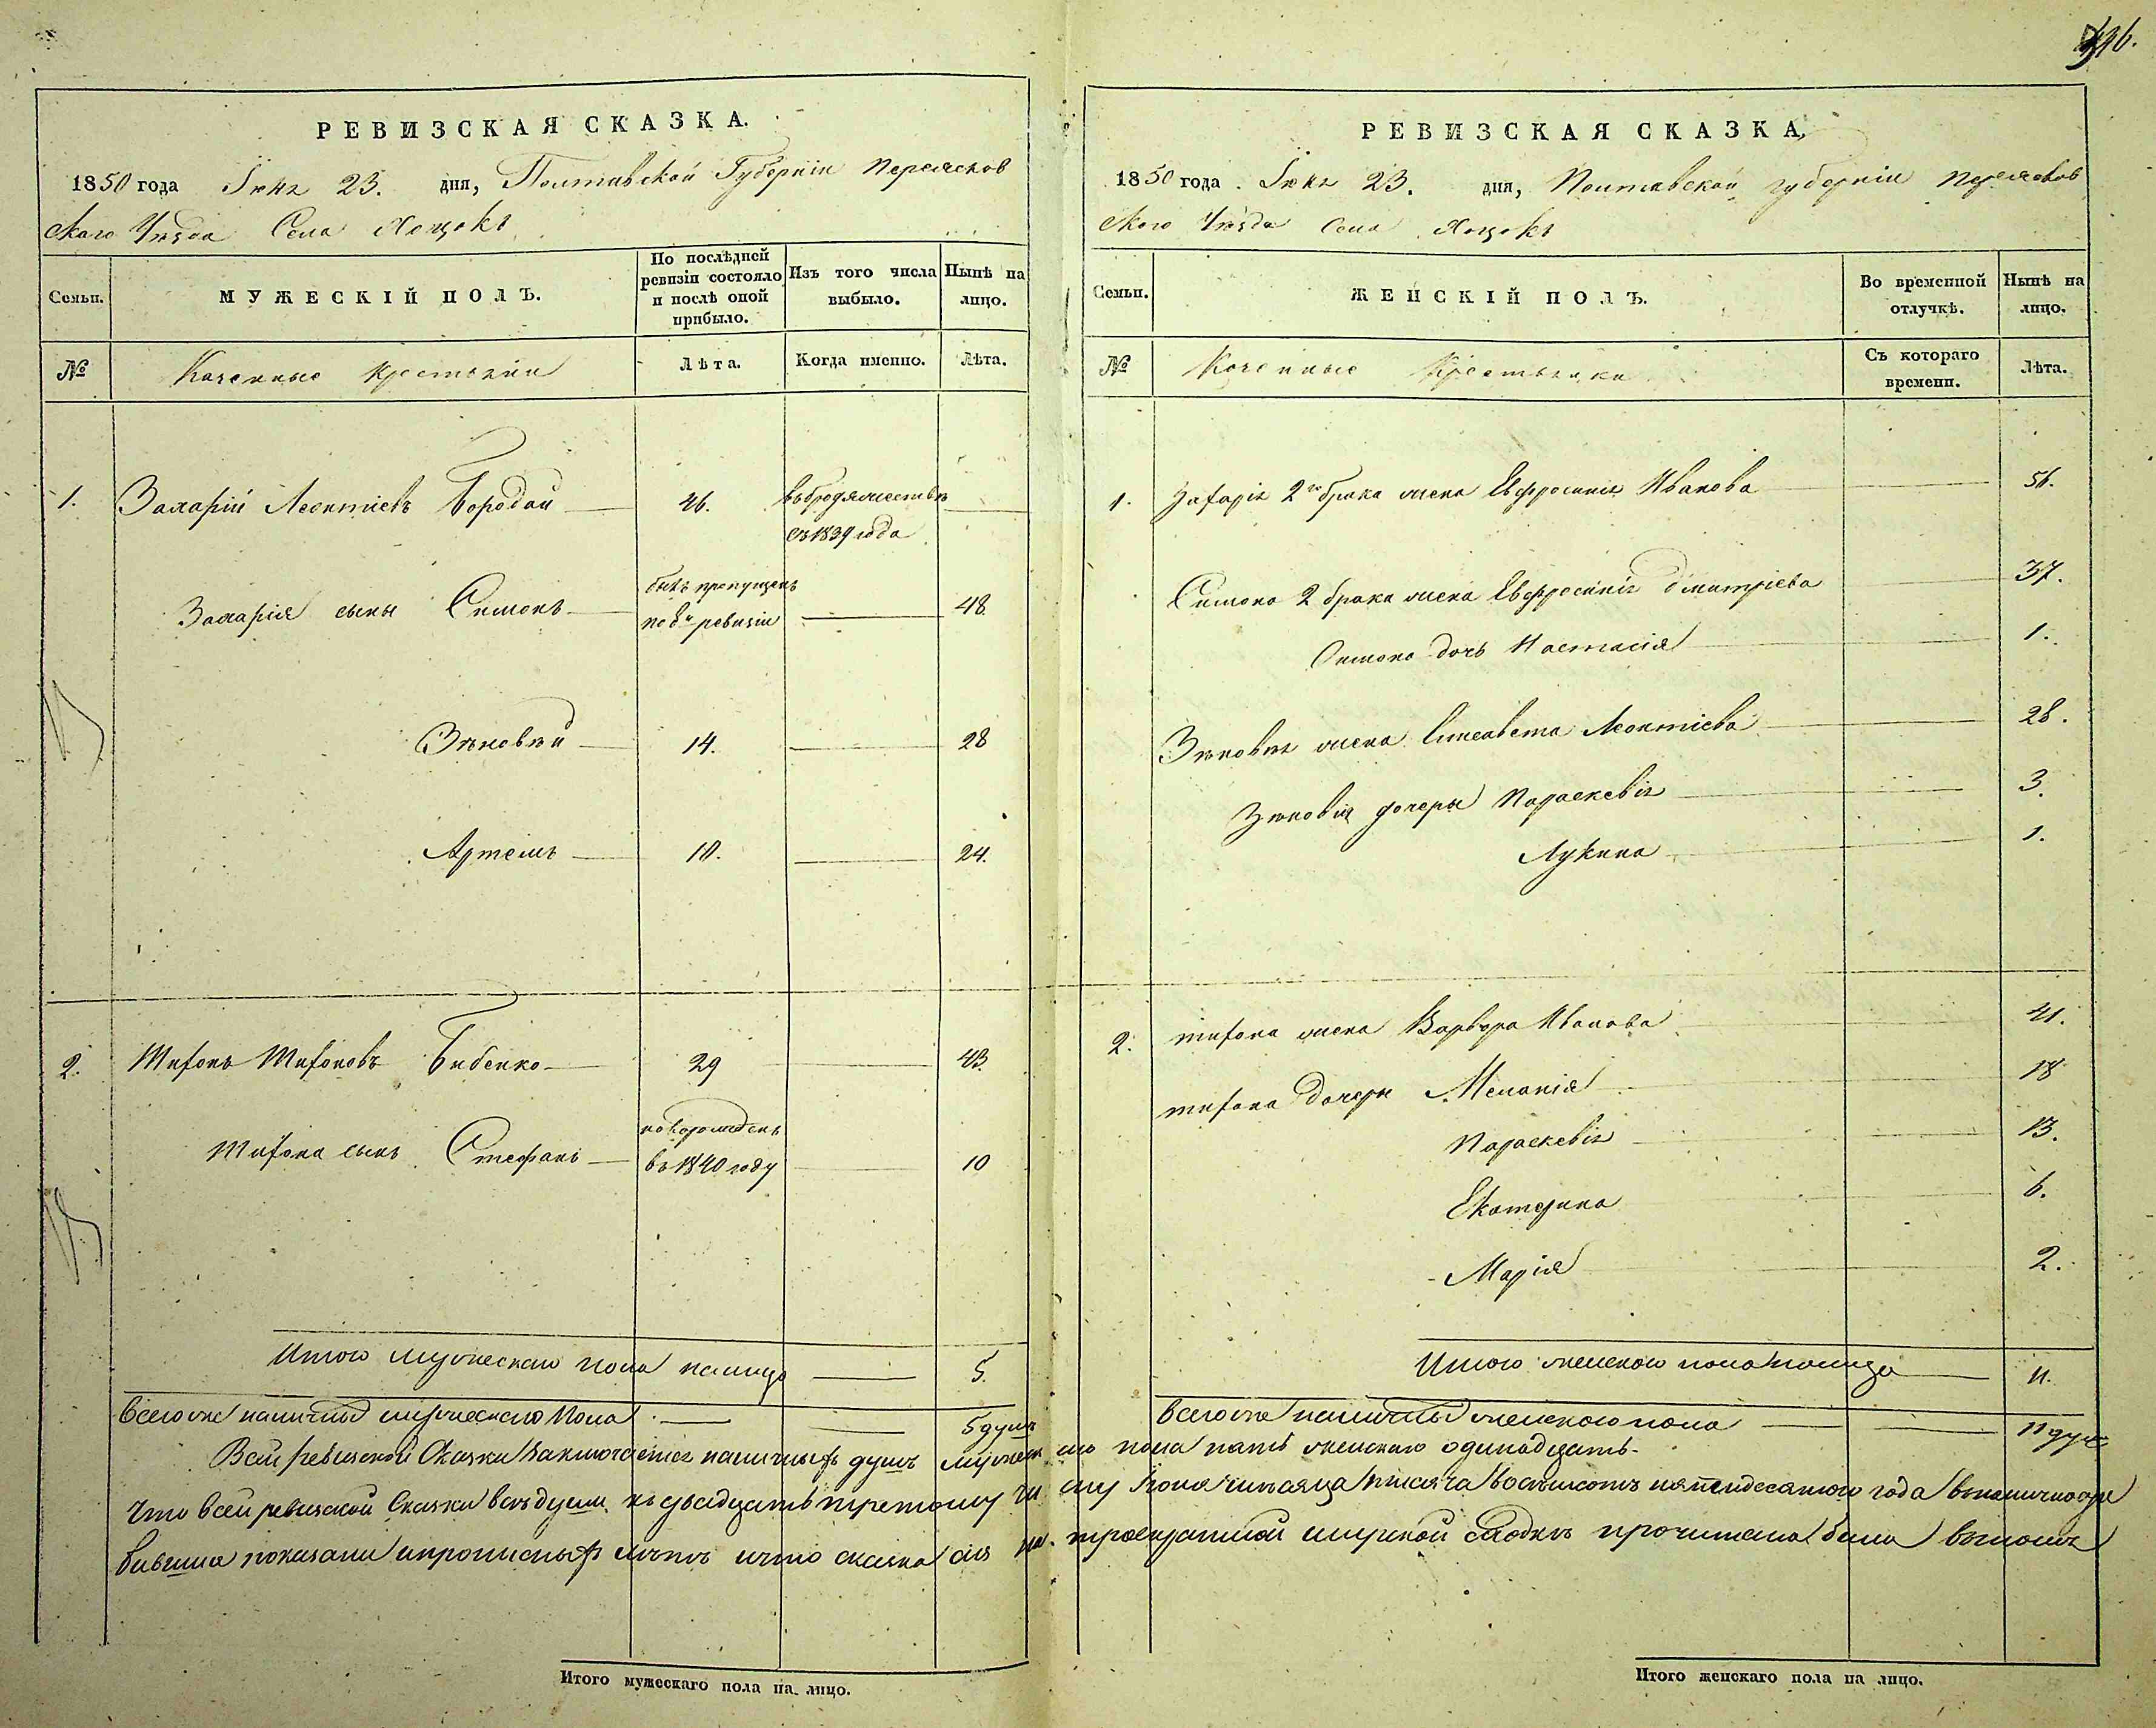 396.
РЕВИЗСКАЯ СКАЗКА.
1850 года Іюня 23. дня, Полтавской Губерніи Переяслов
скаго Уезда Села Хоцокъ
Семьи.
МУЖЕСКІЙ ПОЛЪ.
По послѣдней ревизіи состояло и послѣ оной прибыло.
Изъ того числа выбыло.
Нынѣ на лицо.
№
Казенные крестьяни
Лѣта.
Когда именно.
Лѣта.
1. Захарій Леонтіевъ Бородай 46. въ бродяжествѣ
съ 1839 года
Захарія сыны Симонъ былъ пропущенъ по 8й ревизіи 48.
Зѣновѣй 14. 28
Артемъ 10. 24.
2. Тихонъ Тихоновъ Бибенко 29 43.
Тихона сынъ Стефанъ новорожденъ въ 1840 году 10
Итого мужескаго пола налицо 5.
Всего же наличныхъ мужескаго пола 5 душъ
Итого мужескаго пола на лицо.
РЕВИЗСКАЯ СКАЗКА,
1850 года. Іюня 23. дня, Полтавской губерніи Переяслов
ского Уезда Села Хоцокъ
Семьи.
ЖЕНСКІЙ ПОЛЪ.
Во временной отлучкѣ.
Нынѣ на лицо.
№
Казенные Крестьянки
Съ котораго времени.
Лѣта.
1. Захарія 2го брака жена Евфросинія Иванова 56.
Симона 2 брака жена Евфросинія Дмитріева 37.
Симона дочь Настасія 1.
Зѣновія жена Елисавета Леонтіева 28.
Зѣновія дочери Параскевія 3.
Лукина 1.
2. Тихона жена Варвара Иванова 41.
Тихона дочери Меланія 18
Параскевія 13.
Екатерина 6.
Марія 2.
Итого женскаго пола налицо 11.
Всего же наличныхъ женскаго пола 11 душъ
Всей ревизской Сказки заключается наличныхъ душъ мужескаго пола пять женскаго одинадцать.
Что всей ревизской Сказки всѣ души къ двадцать третому числу Іюня мѣсяца тысяча восемьсотъ пятидесятого года
бывшия показани и прописныхъ нѣтъ и что сказка сія на мирской сходкѣ прочитана была въ томъ
Итого женскаго пола на лицо.